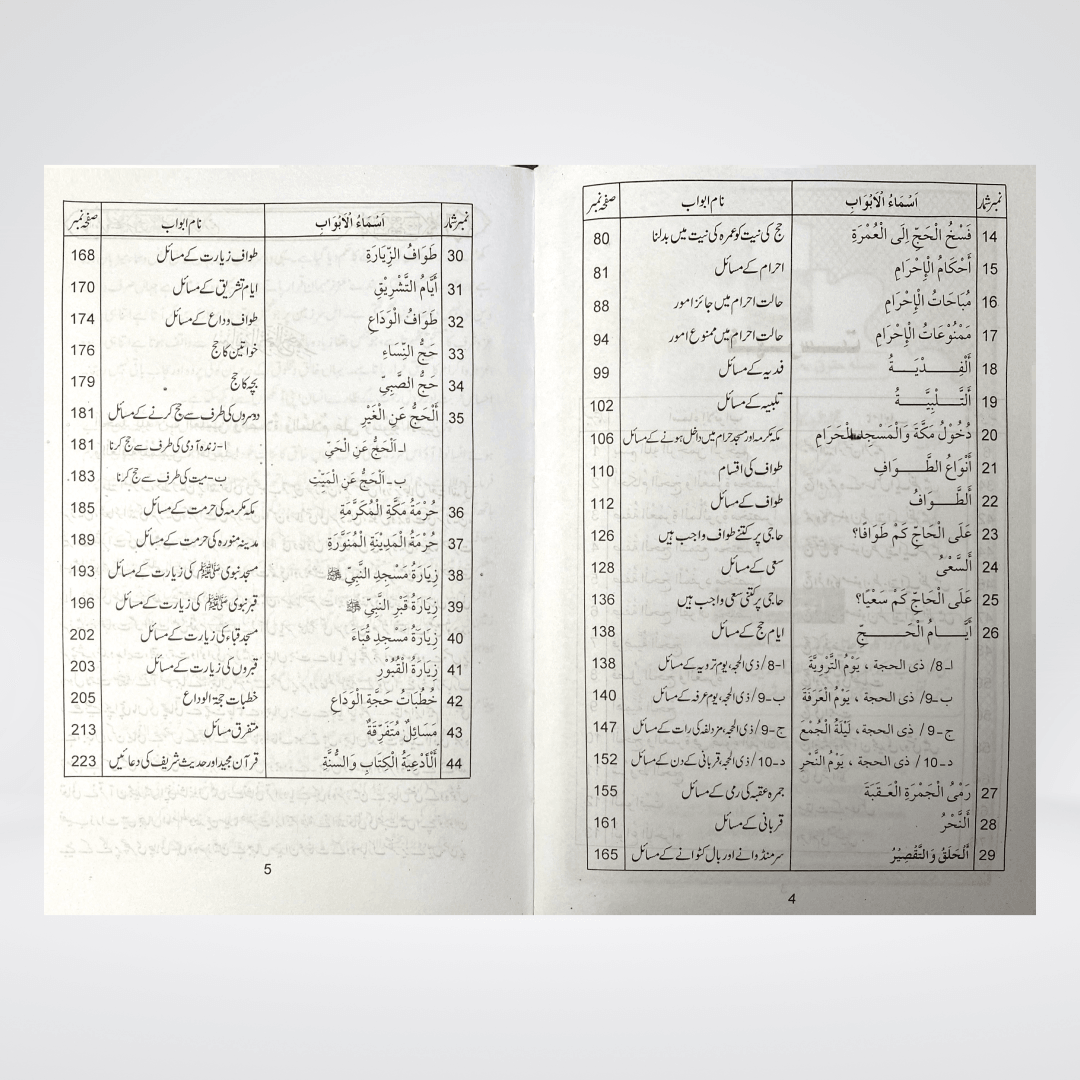 نمبر شمار اَسْمَاءُ الْاَبْوَابِ نام ابواب صفحہ نمبر
14 فَسْخُ الْحَجِّ اِلَى الْعُمْرَةِ حج کی نیت کو عمرہ کی نیت میں بدلنا 80
15 أَحْكَامُ الْإِحْرَامِ احرام کے مسائل 81
16 مُبَاحَاتُ الْإِحْرَامِ حالت احرام میں جائز امور 88
17 مَمْنُوْعَاتُ الْإِحْرَامِ حالت احرام میں ممنوع امور 94
18 أَلْفِـــدْيَـــةُ فدیہ کے مسائل 99
19 أَلتَّـــلْبِيَّـــةُ تلبیہ کے مسائل 102
20 دُخُوْلُ مَكَّةَ وَالْمَسْجِدِ الْحَرَامِ مکہ مکرمہ اور مسجد حرام میں داخل ہونے کے مسائل 106
21 أَنْوَاعُ الطَّـــوَافِ طواف کی اقسام 110
22 أَلطَّـــوَافُ طواف کے مسائل 112
23 عَلَى الْحَاجِّ كَمْ طَوَافًا؟ حاجی پر کتنے طواف واجب ہیں 126
24 أَلسَّعْىُ سعی کے مسائل 128
25 عَلَى الْحَاجِّ كَمْ سَعْيًا؟ حاجی پر کتنی سعی واجب ہیں 136
26 أَيَّـــامُ الْحَـــجِّ ایام حج کے مسائل 138
ا-8/ ذى الحجة ، يَوْمُ التَّرْوِيَّةَ ا-8/ ذی الحجہ، یوم ترویہ کے مسائل 138
ب-9/ ذى الحجة ، يَوْمُ الْعَرَفَةَ ب-9/ ذی الحجہ، یوم عرفہ کے مسائل 140
ج-9/ ذى الحجة ، لَيْلَةُ الْجُمْعَ ج-9/ ذی الحجہ، مزدلفہ کی رات کے مسائل 147
د-10/ ذى الحجة ، يَوْمُ النَّحْرِ د-10/ ذی الحجہ، قربانی کے دن کے مسائل 152
27 رَمْىُ الْجَمْرَةِ الْعَـقَبَةَ جمرہ عقبہ کی رمی کے مسائل 155
28 أَلنَّحْرُ قربانی کے مسائل 161
29 أَلْحَلَقُ وَالتَّقْصِيْرُ سر منڈوانے اور بال کٹوانے کے مسائل 165
4
نمبر شمار اَسْمَاءُ الْاَبْوَابِ نام ابواب صفحہ نمبر
30 طَوَافُ الزِّيَارَةِ طواف زیارت کے مسائل 168
31 أَيَّامُ التَّشْرِيْقِ ایام تشریق کے مسائل 170
32 طَوَافُ الْوَدَاعِ طواف وداع کے مسائل 174
33 حَجُّ النِّسَاءِ خواتین کا حج 176
34 حَجُّ الصَّبِيِّ بچہ کا حج 179
35 أَلْحَجُّ عَنِ الْغَيْرِ دوسروں کی طرف سے حج کرنے کے مسائل 181
ا-اَلْحَجُّ عَنِ الْحَيِّ ا-زندہ آدمی کی طرف سے حج کرنا 181
ب-اَلْحَجُّ عَنِ الْمَيِّتِ ب-میت کی طرف سے حج کرنا 183
36 حُرْمَةُ مَكَّةِ الْمُكَرَّمَةِ مکہ مکرمہ کی حرمت کے مسائل 185
37 حُرْمَةُ الْمَدِيْنَةِ الْمُنَوَّرَةِ مدینہ منورہ کی حرمت کے مسائل 189
38 زِيَارَةُ مَسْجِدِ النَّبِيِّ ﷺ مسجد نبوی ﷺ کی زیارت کے مسائل 193
39 زِيَارَةُ قَبْرِ النَّبِيِّ ﷺ قبر نبوی ﷺ کی زیارت کے مسائل 196
40 زِيَارَةُ مَسْجِدِ قُبَاءَ مسجد قباء کی زیارت کے مسائل 202
41 زِيَارَةُ الْقُبُوْرِ قبروں کی زیارت کے مسائل 203
42 خُطُبَاتُ حَجَّةِ الْوَدَاعِ خطبات حجۃ الوداع 205
43 مَسَائِلُ مُتَفَرِّقَةٌ متفرق مسائل 213
44 أَلْأَدْعِيَةُ الْكِتَابِ وَالسُّنَّةِ قرآن مجید اور حدیث شریف کی دعائیں 223
5